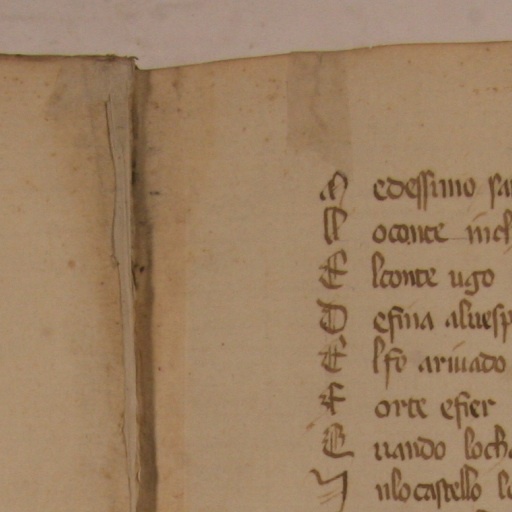 M edessimo
L oconte
E lconte ugo
D efina aluesp
E l fo ariuado
F orte efier
Q uando loch
I nlo castello lo